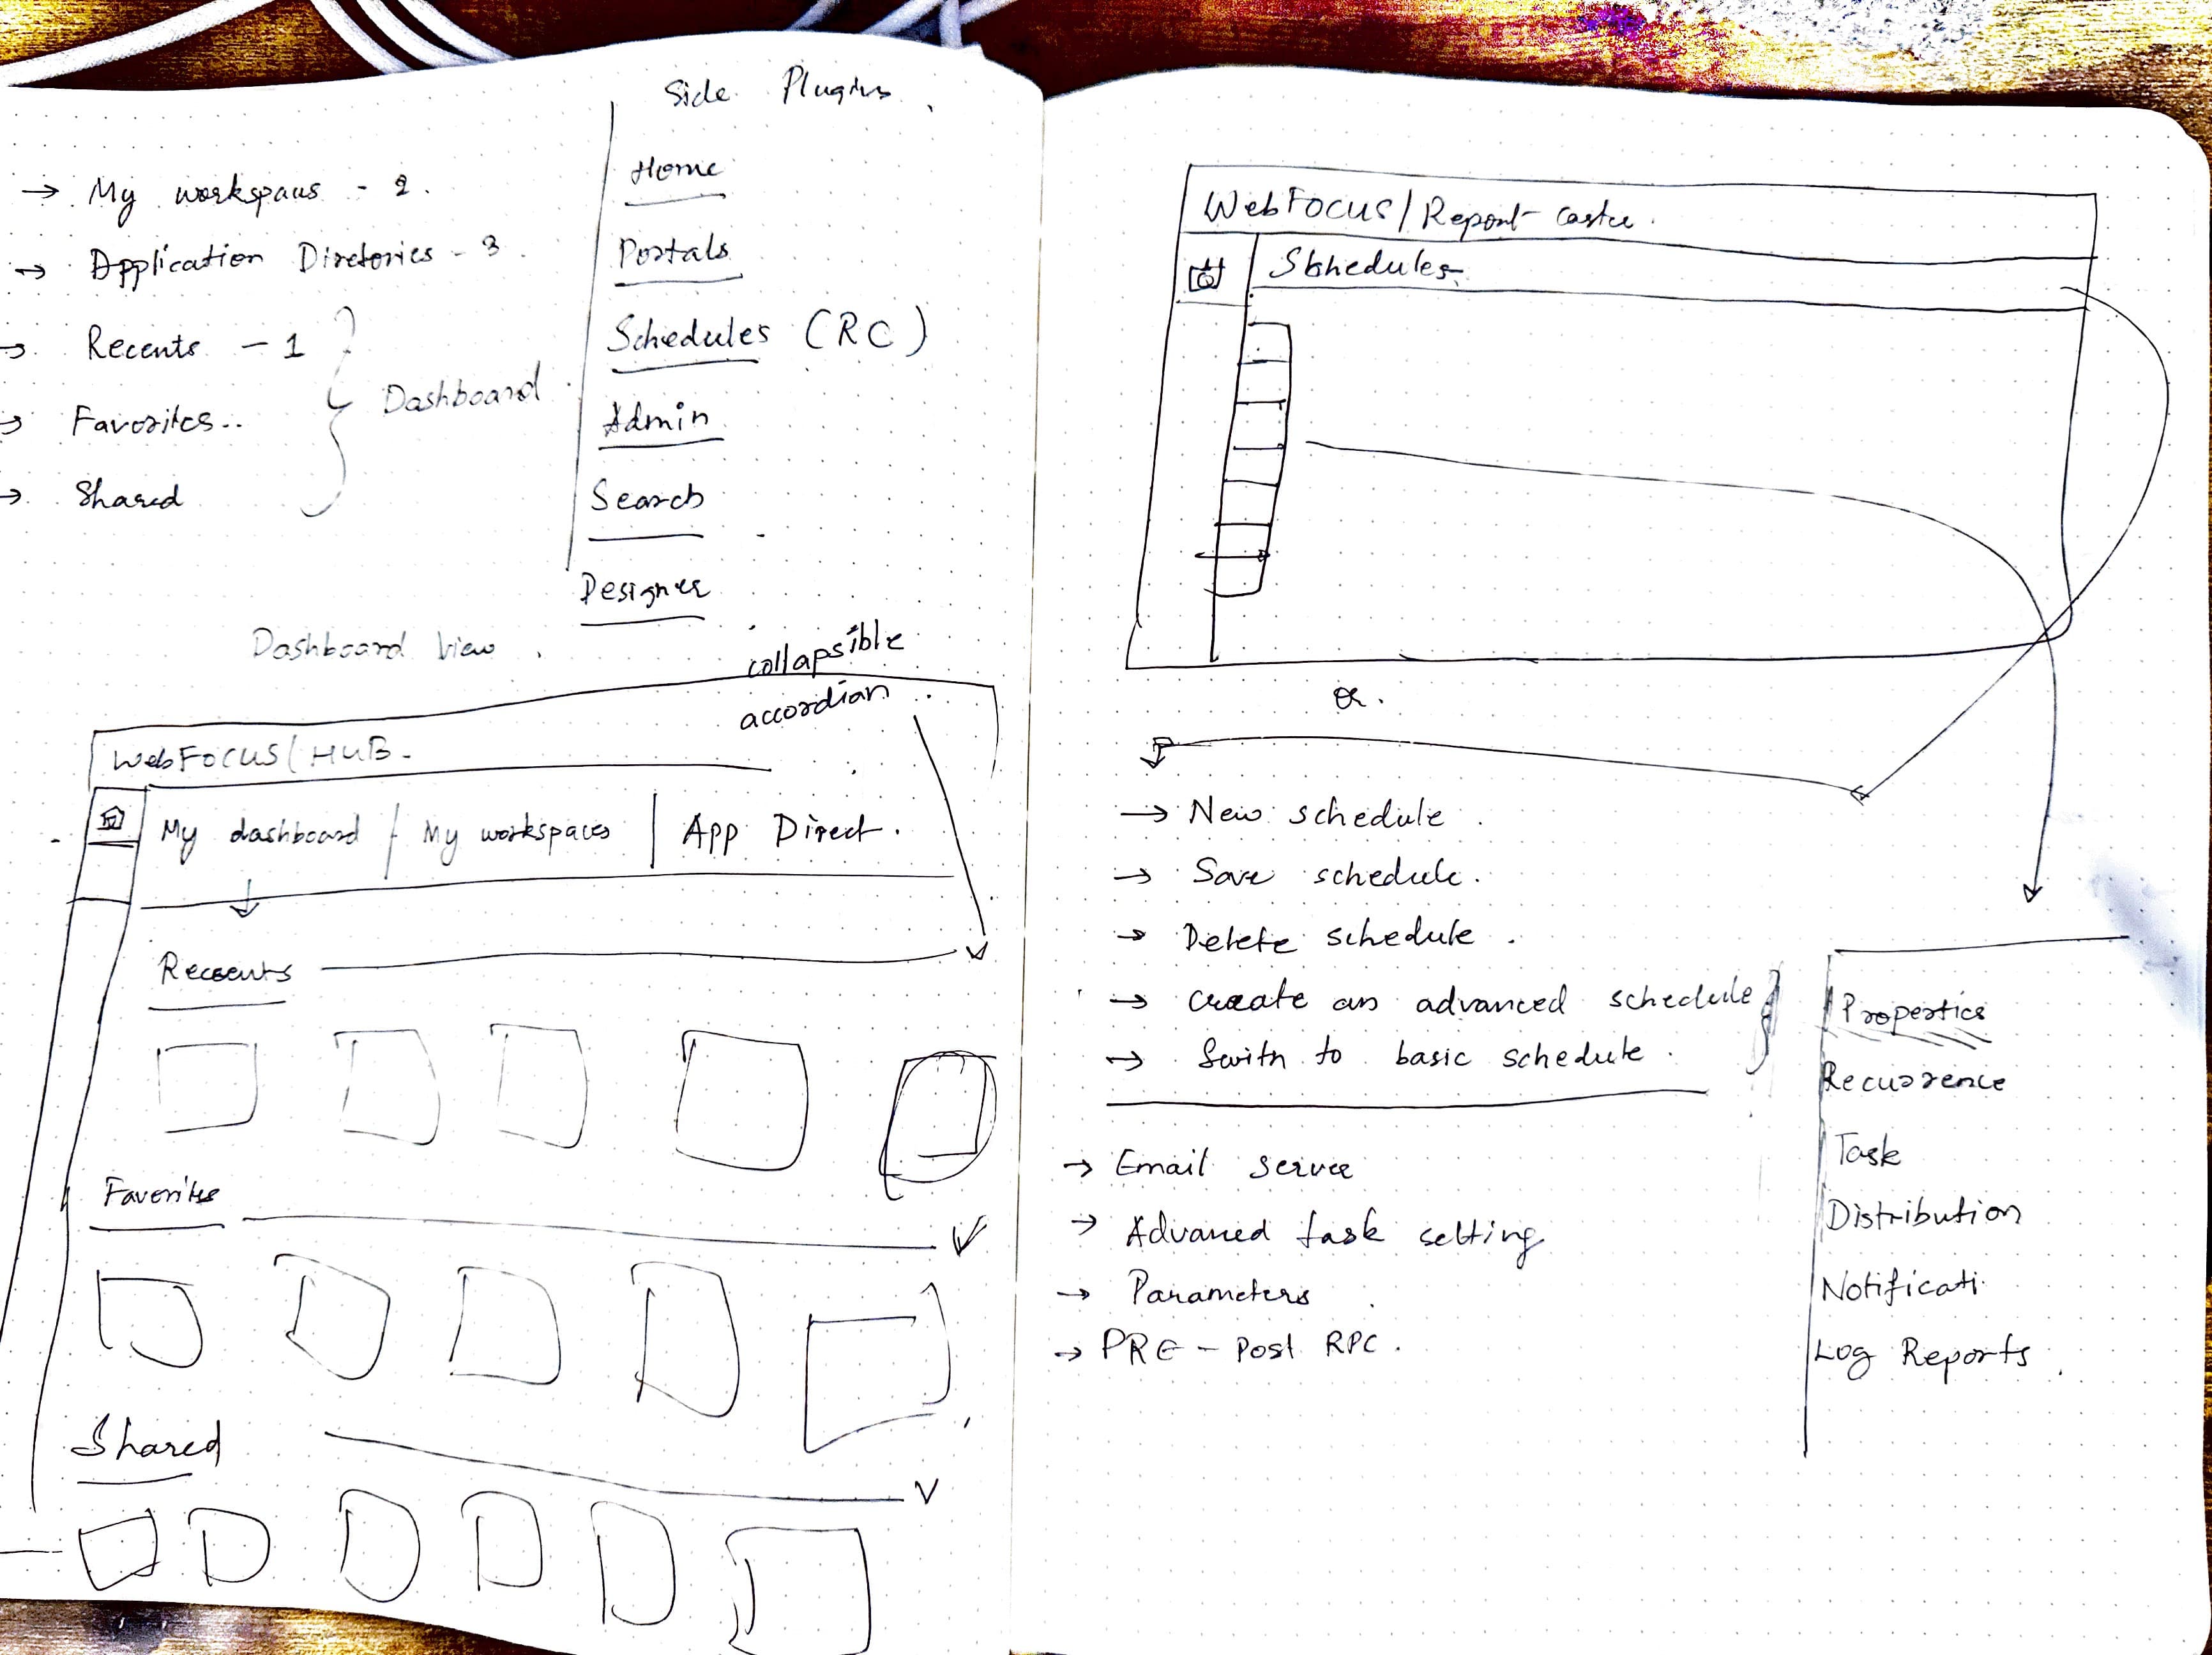 Side Plugins
→ My workspaus - 2.
→ Application Diretories - 3
→ Recents - 1
→ Favorites..
→ Shared
Dashboard
Home
Portals
Schedules (RC)
Admin
Search
Designer
Dashboard View.
collapsible
accordian
WebFOCUS/HUB-
My dashboard / My workspaces | App Direct.
Recents
Favorites
Shared
WebFOCUS/Report caster.
Schedules
or.
→ New schedule.
→ Save schedule.
→ Delete schedule.
→ create an advanced schedule
→ Swith to basic schedule.
→ Email server
→ Advanced task setting
→ Parameters
→ PRE - Post RPC.
Properties
Recurrence
Task
Distribution
Notificati.
Log Reports.